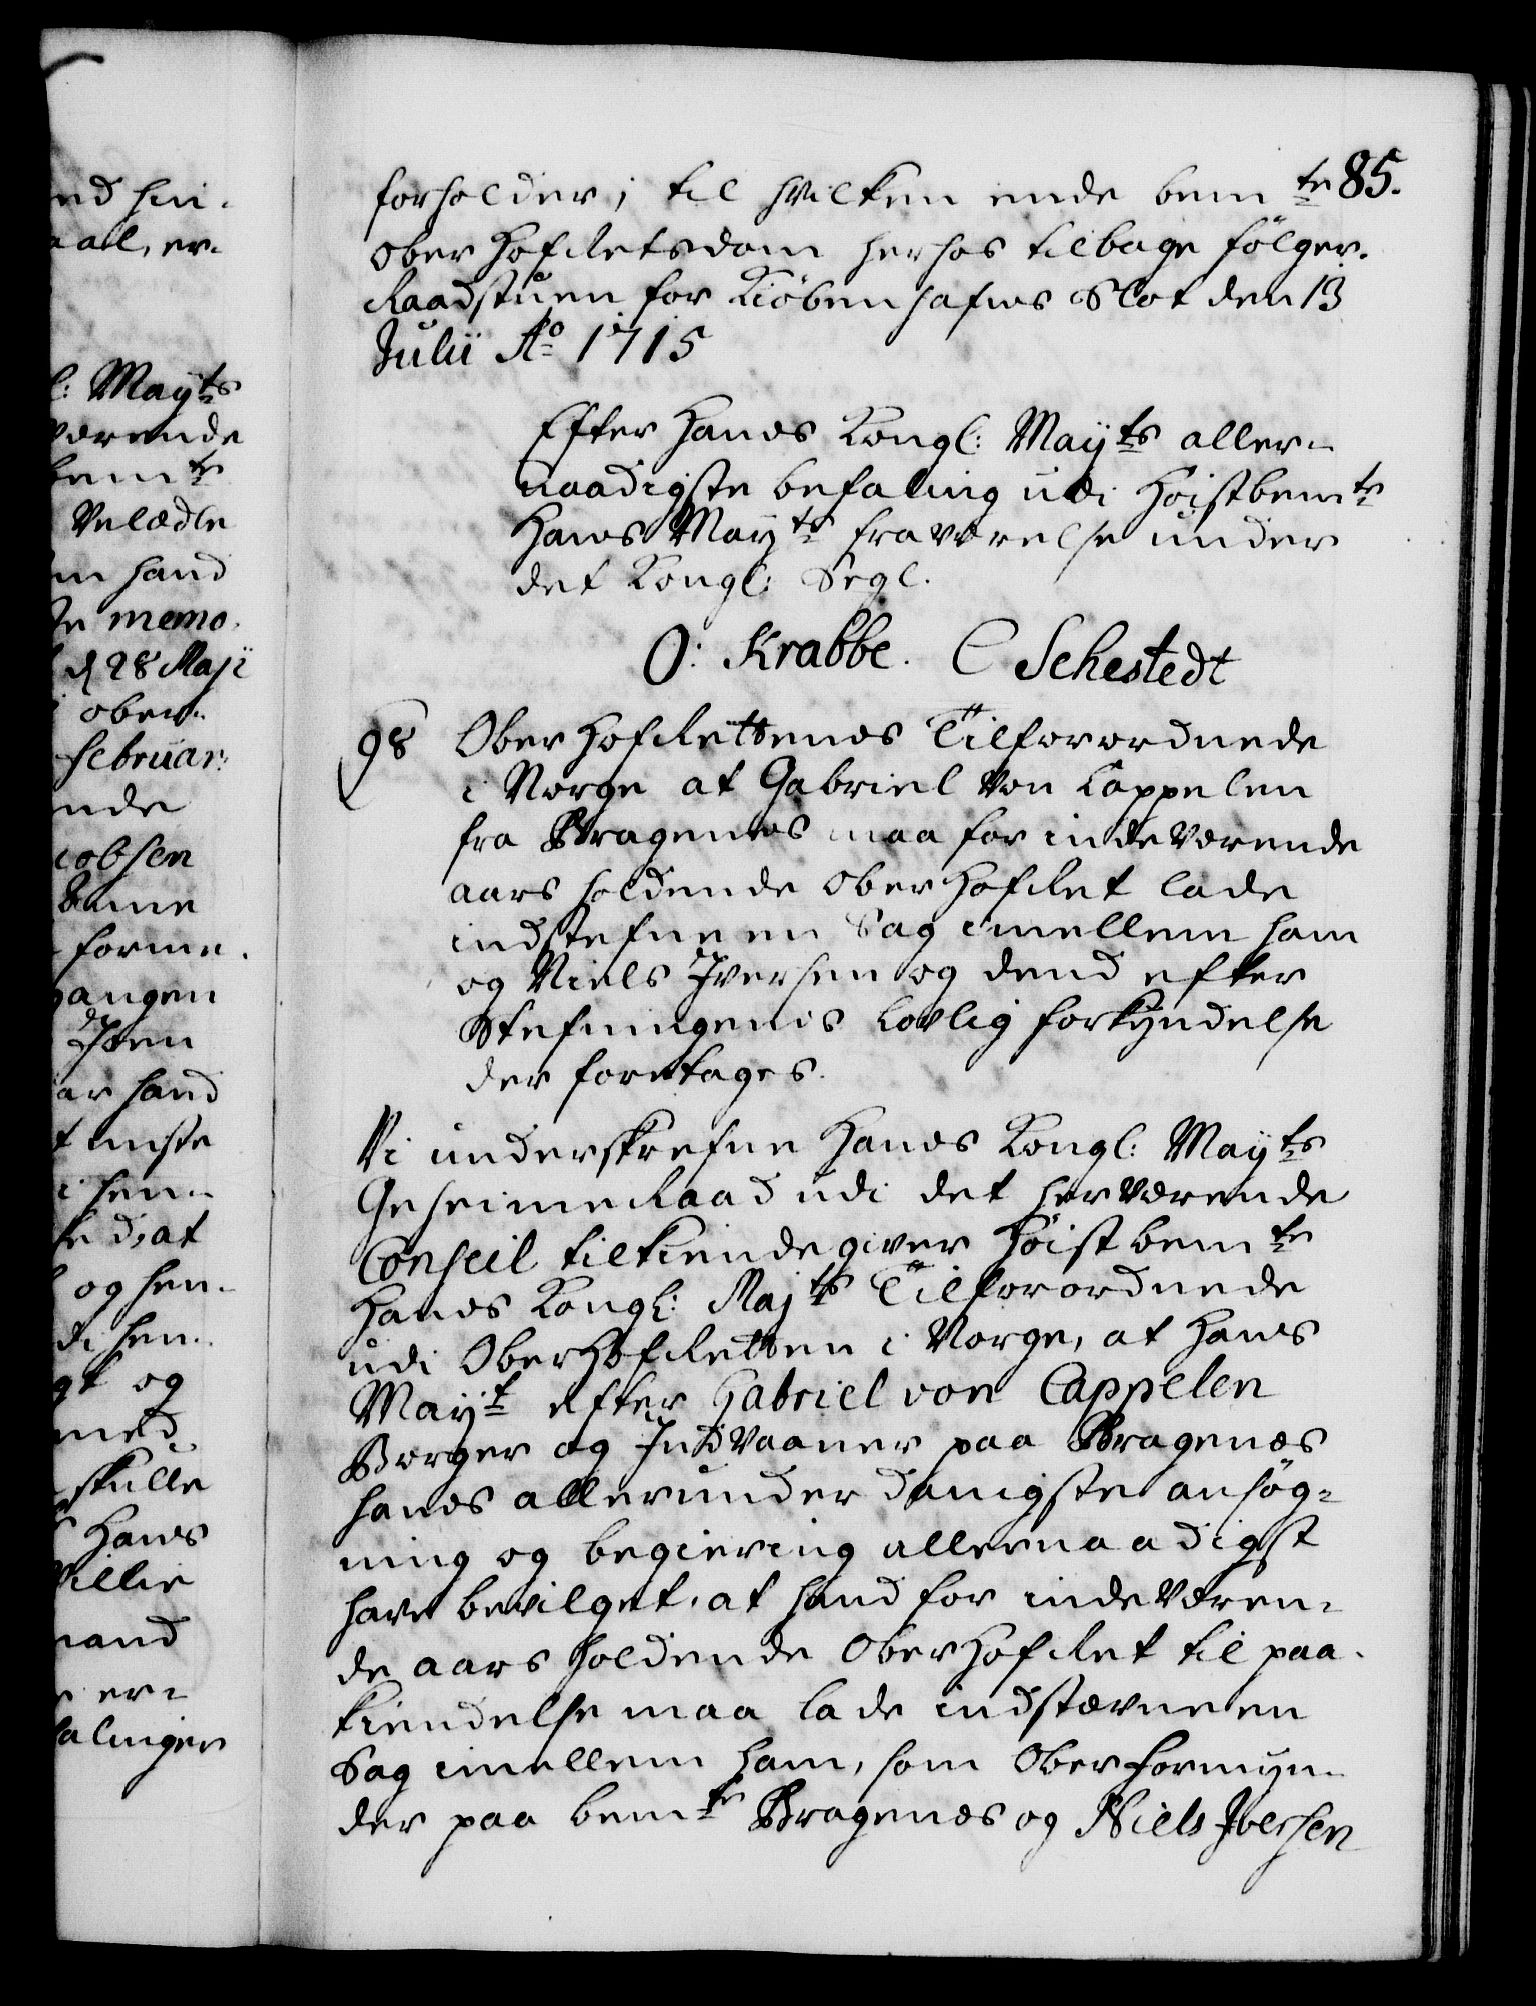 85.
forholder; til hvilken ende bemte
Ober Hof Retsdom herhos tilbage følger.
Raadstuen for Kiöbenhafns Slot den 13
Julii Ao 1715
Efter Hanns Kongl: Mayts aller-
naadigste befaling udi Høistbemte
Hanns Mayts fraværelse under
det Kongl: Segl.
O: Krabbe. C Sehestedt
98 Ober Hof Rettens Tilforordnede
i Norge at Gabriel von Cappelen
fra Bragenes maa for indeværende
aars holdende Ober Hof Ret lade
indstefne en Sag imellem ham
og Niels Iversen og dend efter
Stefningens Lovlig forkyndelse
der foretages.
Vi underskrefne Hanns Kongl: Mayts
Geheime Raad udi det herværende
Conseil tilkiendegiver Høist bemte
Hanns Kongl: Majts Tilforordnede
udi Ober Hof Retten i Norge, at Hanns
Mayt efter Gabriel von Cappelen
Borger og Indvaaner paa Bragenes
hanns allerunderdanigste ansøg-
ning og begiering allernaadigst
have bevilget, at hand for indeværen-
de aars holdende Ober Hof Ret til paa-
kiendelse maa lade indstævne en
Sag imellem ham, som Ober formyn-
der paa bemte Bragenes og Niels Iversen
ed hen-
aal, er-
l: Mayts
værende
bemte
Velædle
en hand
te memo-
d 28 Maji
ober-
februar:
nde
cobsen
forme-
gangen
Iten
ar hand
i hen-
ed, at
og hen-
di hen-
gt og
med
skulle
Hanns
Villie
mand
er-
falinger